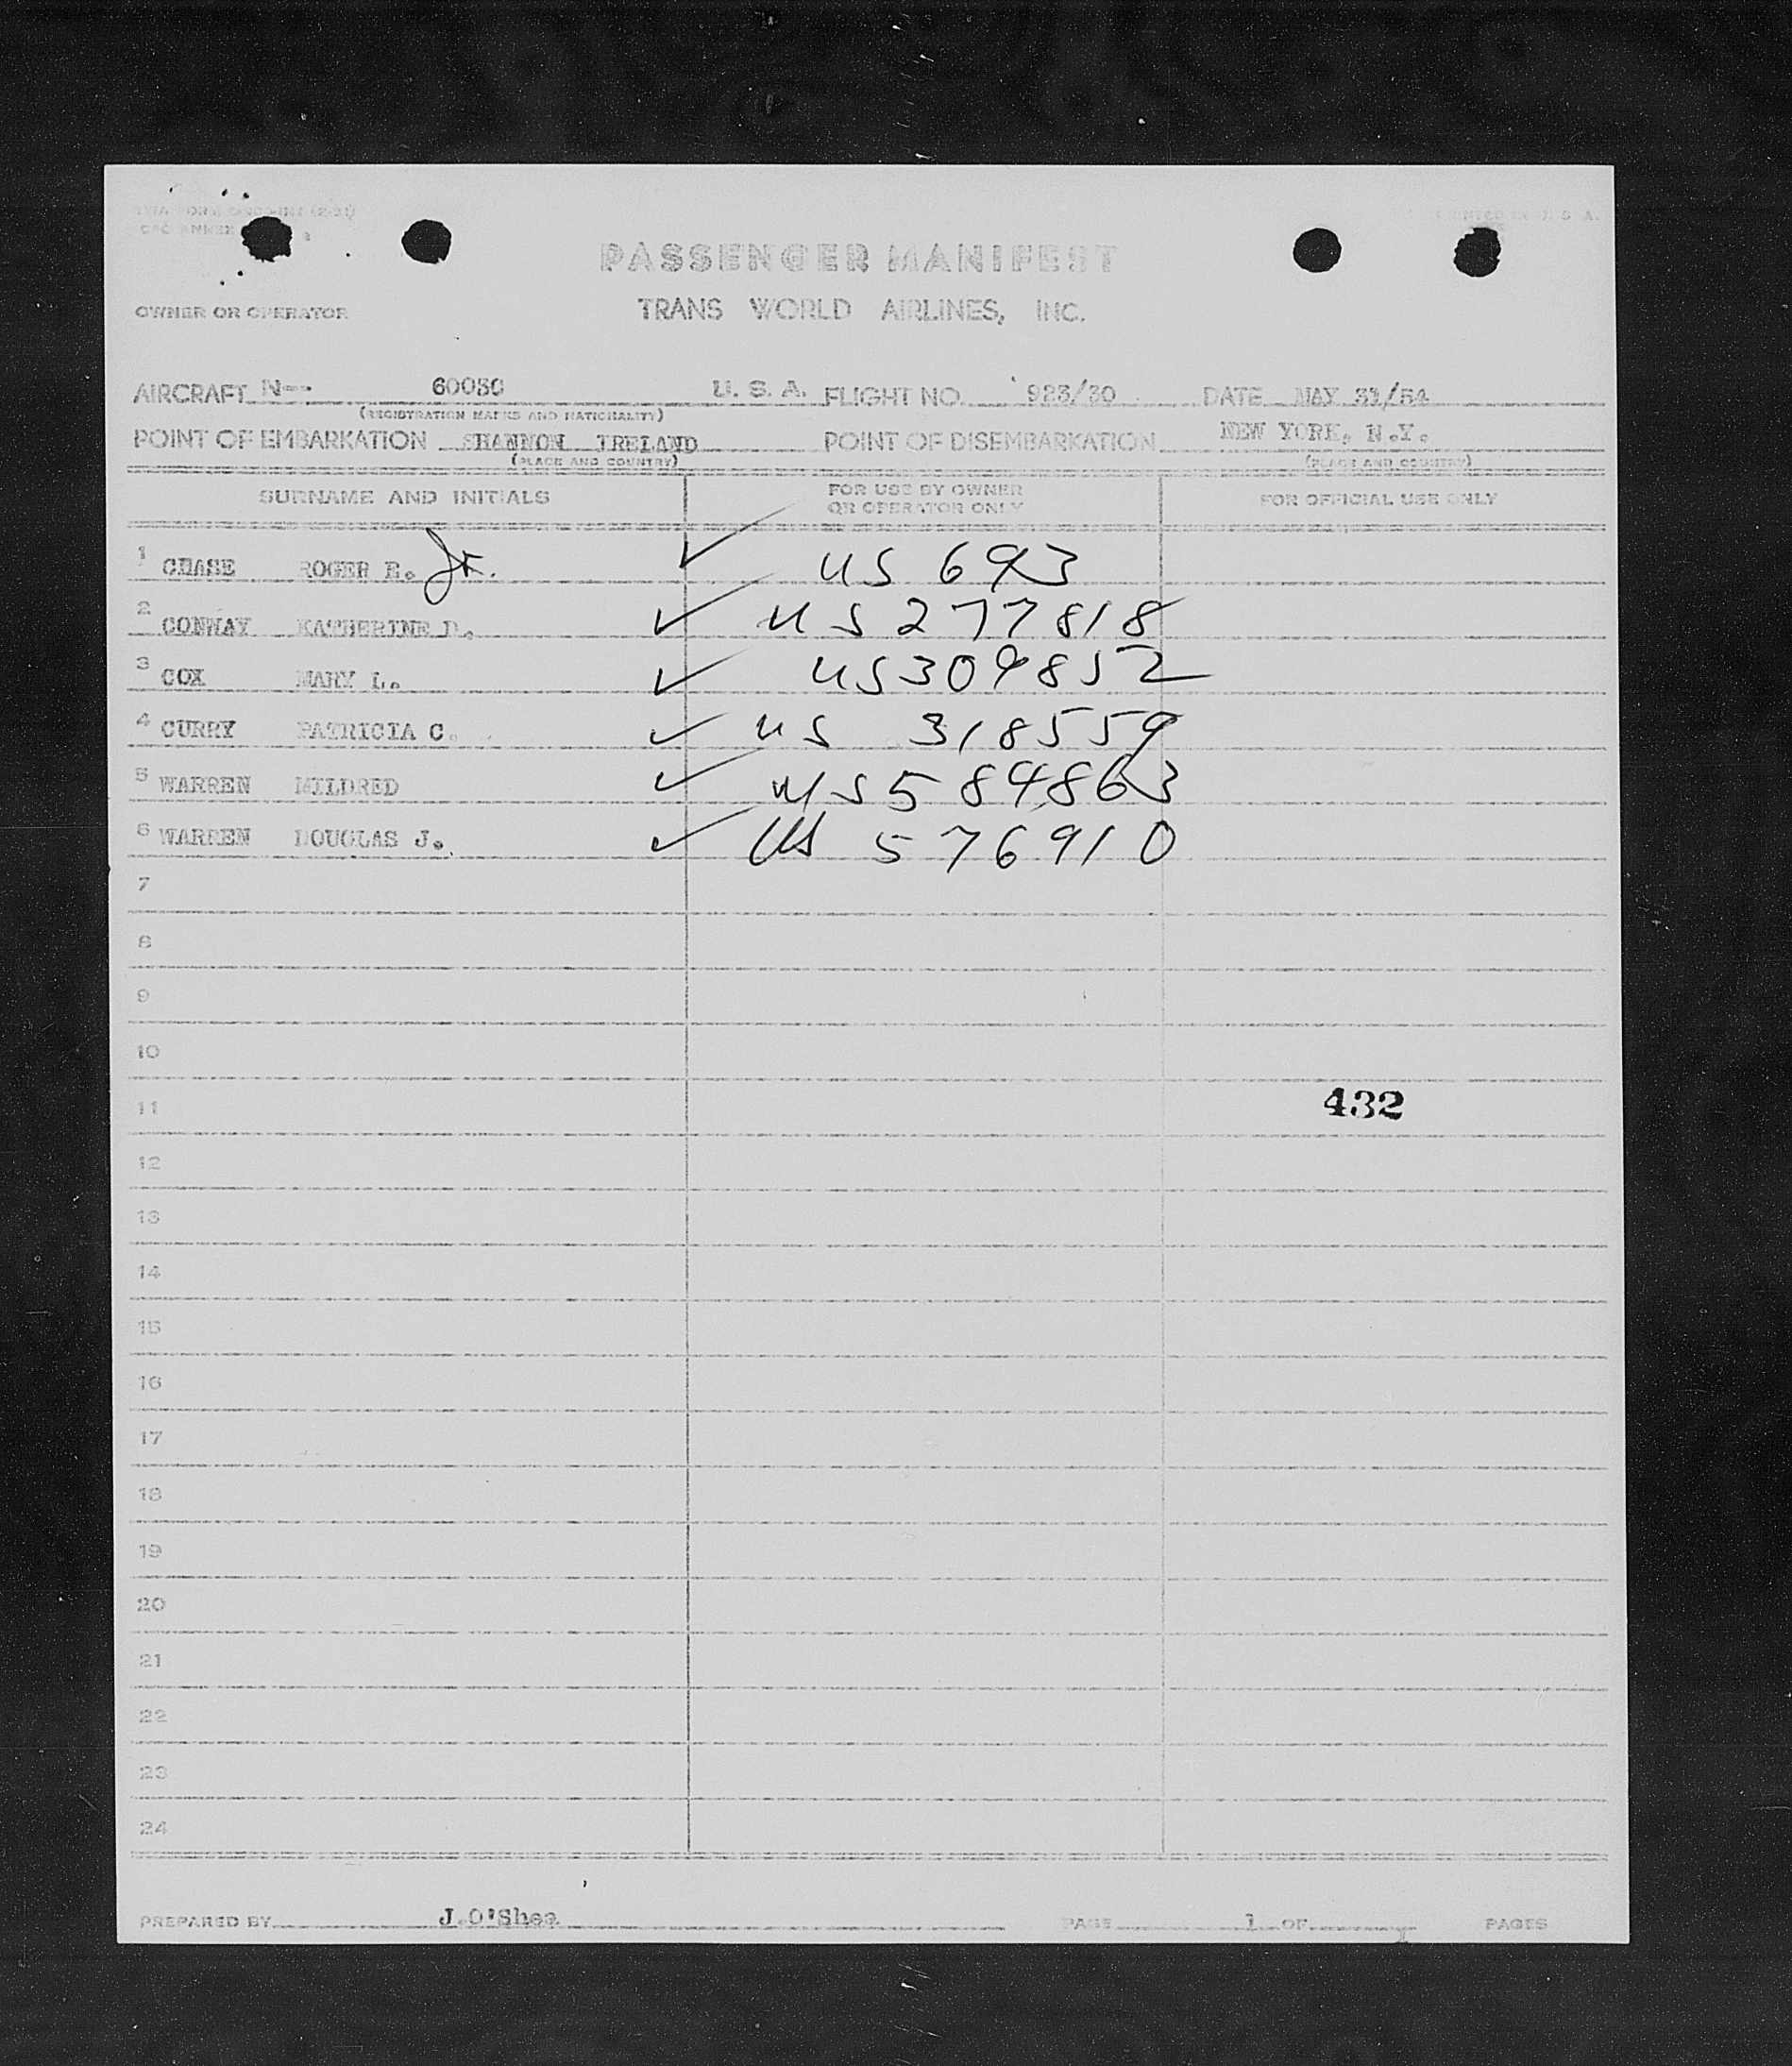 PRINTED IN U.S.A.
PASSENGER MANIFEST
OWNER OR OPERATOR TRANS WORLD AIRLINES, INC.
AIRCRAFT N-- 60030 U. S. A. FLIGHT NO. 923/30 DATE MAY 31/54
(REGISTRATION MARKS AND NATIONALITY)
POINT OF EMBARKATION SHANNON IRELAND POINT OF DISEMBARKATION NEW YORK, N.Y.
(PLACE AND COUNTRY) (PLACE AND COUNTRY)
SURNAME AND INITIALS FOR USE BY OWNER OR OPERATOR ONLY FOR OFFICIAL USE ONLY
1 CHASE ROGER E. Jr. ✓ US 693
2 CONWAY KATHERINE D. ✓ US 277818
3 COX MARY L. ✓ US309852
4 CURRY PATRICIA C. ✓ US 318559
5 WARREN MILDRED ✓ US 584863
6 WARREN DOUGLAS J. ✓ US 576910
7
8
9
10
11 432
12
13
14
15
16
17
18
19
20
21
22
23
24
PREPARED BY J.O'Shea PAGE 1 OF 1 PAGES